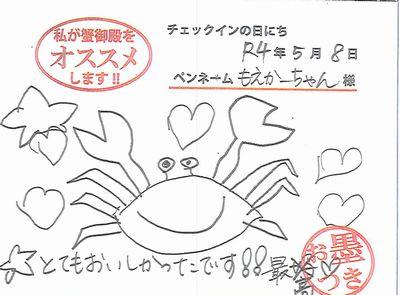 私が蟹御殿を
オススメ
します!!
チェックインの日にち
R4年5月8日
ペンネーム もえかーちゃん 様
とてもおいしかったです!! 最高
墨
おつき